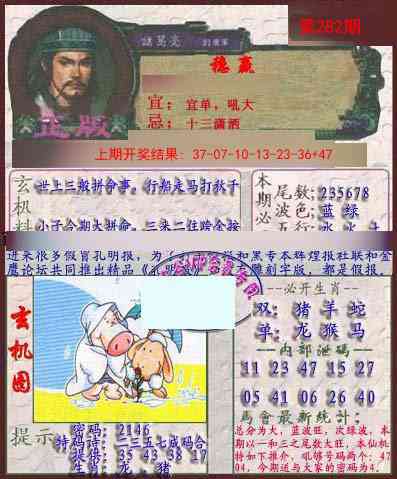 第282期
諸葛亮
稳赢
宜：宜单，吼大
忌：十三潇洒
正版
上期开奖结果：37-07-10-13-23-36+47
玄机料
世上三般拼命事，行船走马打秋千
小子今期大拼命，三来二往跨金鞍
本期必
尾数:235678
波色:蓝 绿
五行:
进来很多假冒孔明报，为了
和黑专本辉煌报社联和金
鹰论坛共同推出精品《孔明报》
雕刻字版，都是假报，
玄机图
必开生肖
双：猪 羊 蛇
单：龙 猴 马
内部泄码
11 23 47 15 27
05 41 06 26 40
馬會最新統計：
总分为大，蓝波旺，次绿波，本
期以一和三之尾数大旺，本仙机
特如下推介，吼够号码两个：47
04，今期送与大家的密码为4．
提示
密码：2146
特码诗：二三五七成码合
提供：35 43 38 17
生肖：龙、猪